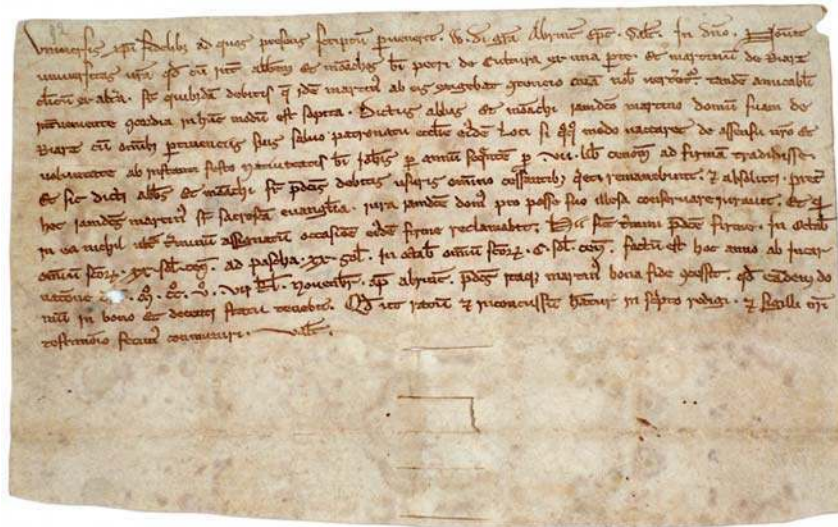 Universis xpi fidelibz ad quos presens scriptu pervenerit. W. di gra Abrinc epc. Salt. In dno. Noverit
universitas vra qd cu int abbtem et monachos bi petri de Cultura ex una pte. et martinu de Biarz
clicu ex alta. sr quibusda debitis q ide martin ab eis exigebat
intveniente gcordia in hunc modu est sopita. Dictus abbas et monachi iamdco martino domu suam de
Biarz cu omibz ptinenciis suis salvo patronatu ecclie eide loci si modo vacaret de assensu nro et
voluntate ab instanti festo nativitatis bi Iohis p annu p VII. lib cenom ad firma tradidisse
Et sic dicti abbs et monachi sr pdcis debitis usuris omnino cessantibz qeti remanebunt. et absoluti.
hoc iamdcs martin sr sacrosca evangelia. iura iamdce dom pro posse suo illesa conservare iuravit. et
in ea nichil ult tminu assignatu occasione eide firme reclamabit. Hii st tmini pdce firme. In Octab
omniu scorz. XX. sol. cen. ad pascha. XX. sol. In octab omniu scorz. C. sol. cen. factu est hoc anno ab incar
natione M. CC. V. VII kl. Novembr. ap abrinc. pdcs itaqz martin bona fide gcessit. qd eande do
mu in bono et decenti statu tenebit. Qd ut ratu et inconcussu hatur in scpto redigi. et sigilli nri
testimonio fecim comuniri. Valt.